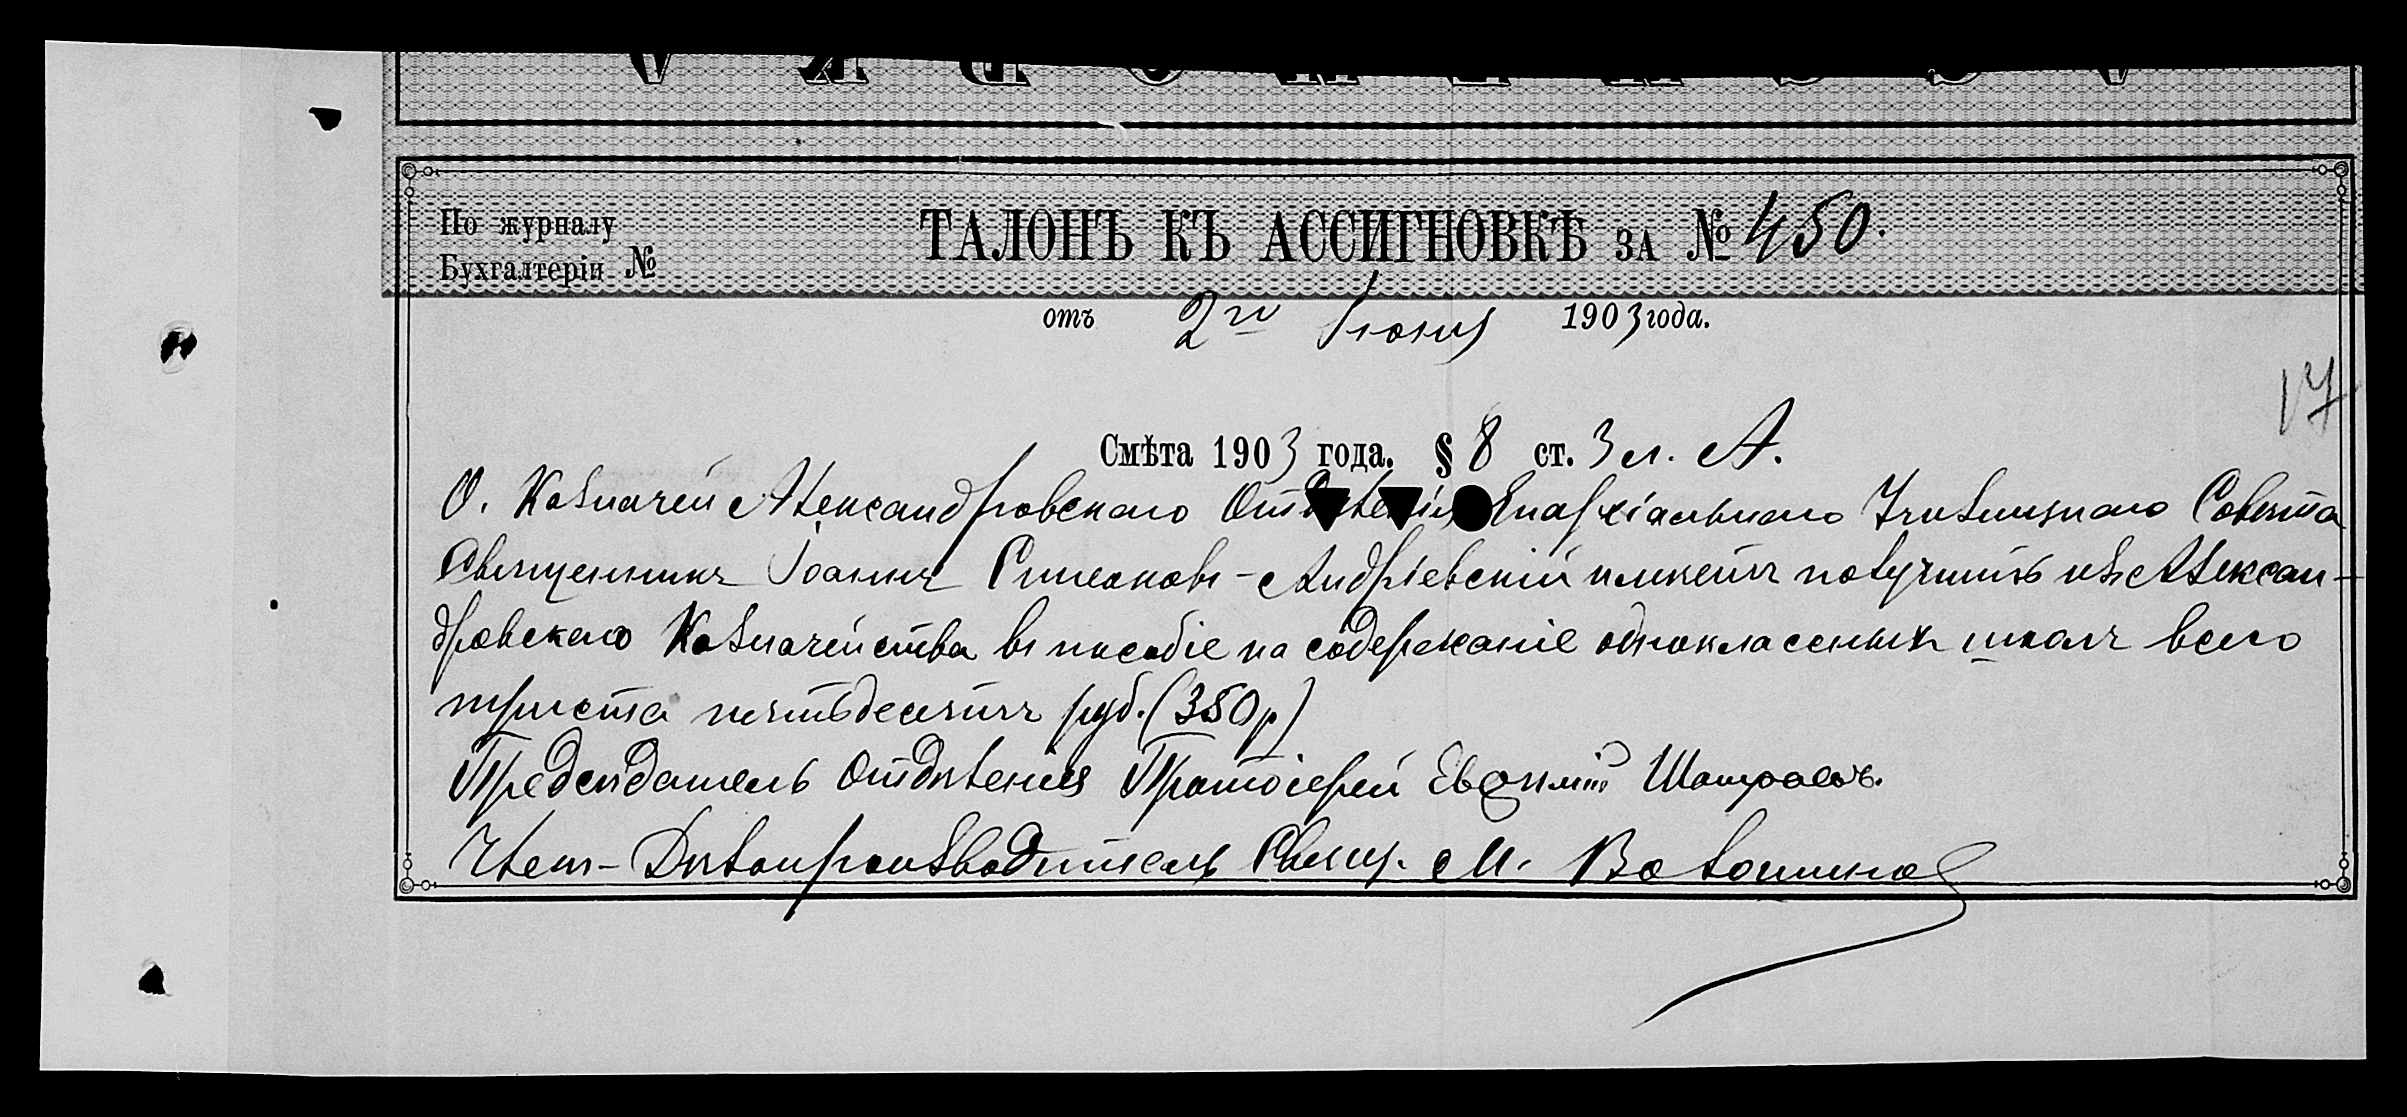 По журналу
Бухгалтеріи №
ТАЛОНЪ КЪ АССИГНОВКѢ ЗА № 450.
отъ 2го Іюня 1903 года.
17
Смѣта 1903 года. § 8 ст. 3 л. А.
О. Казначей Александровскаго Епархіальнаго Училищнаго Совѣта
Священникъ Іоаннъ Симеоновъ-Андріевскій имѣетъ получить изъ Алексан-
дровскаго Казначейства въ пособіе на содержаніе одноклассныхъ школъ всего
триста пятьдесятъ руб. (350 р)
Предсѣдатель Отдѣленія Протоіерей Евѳимій
Членъ-Дѣлопроизводитель Свящ. М. Волошинов